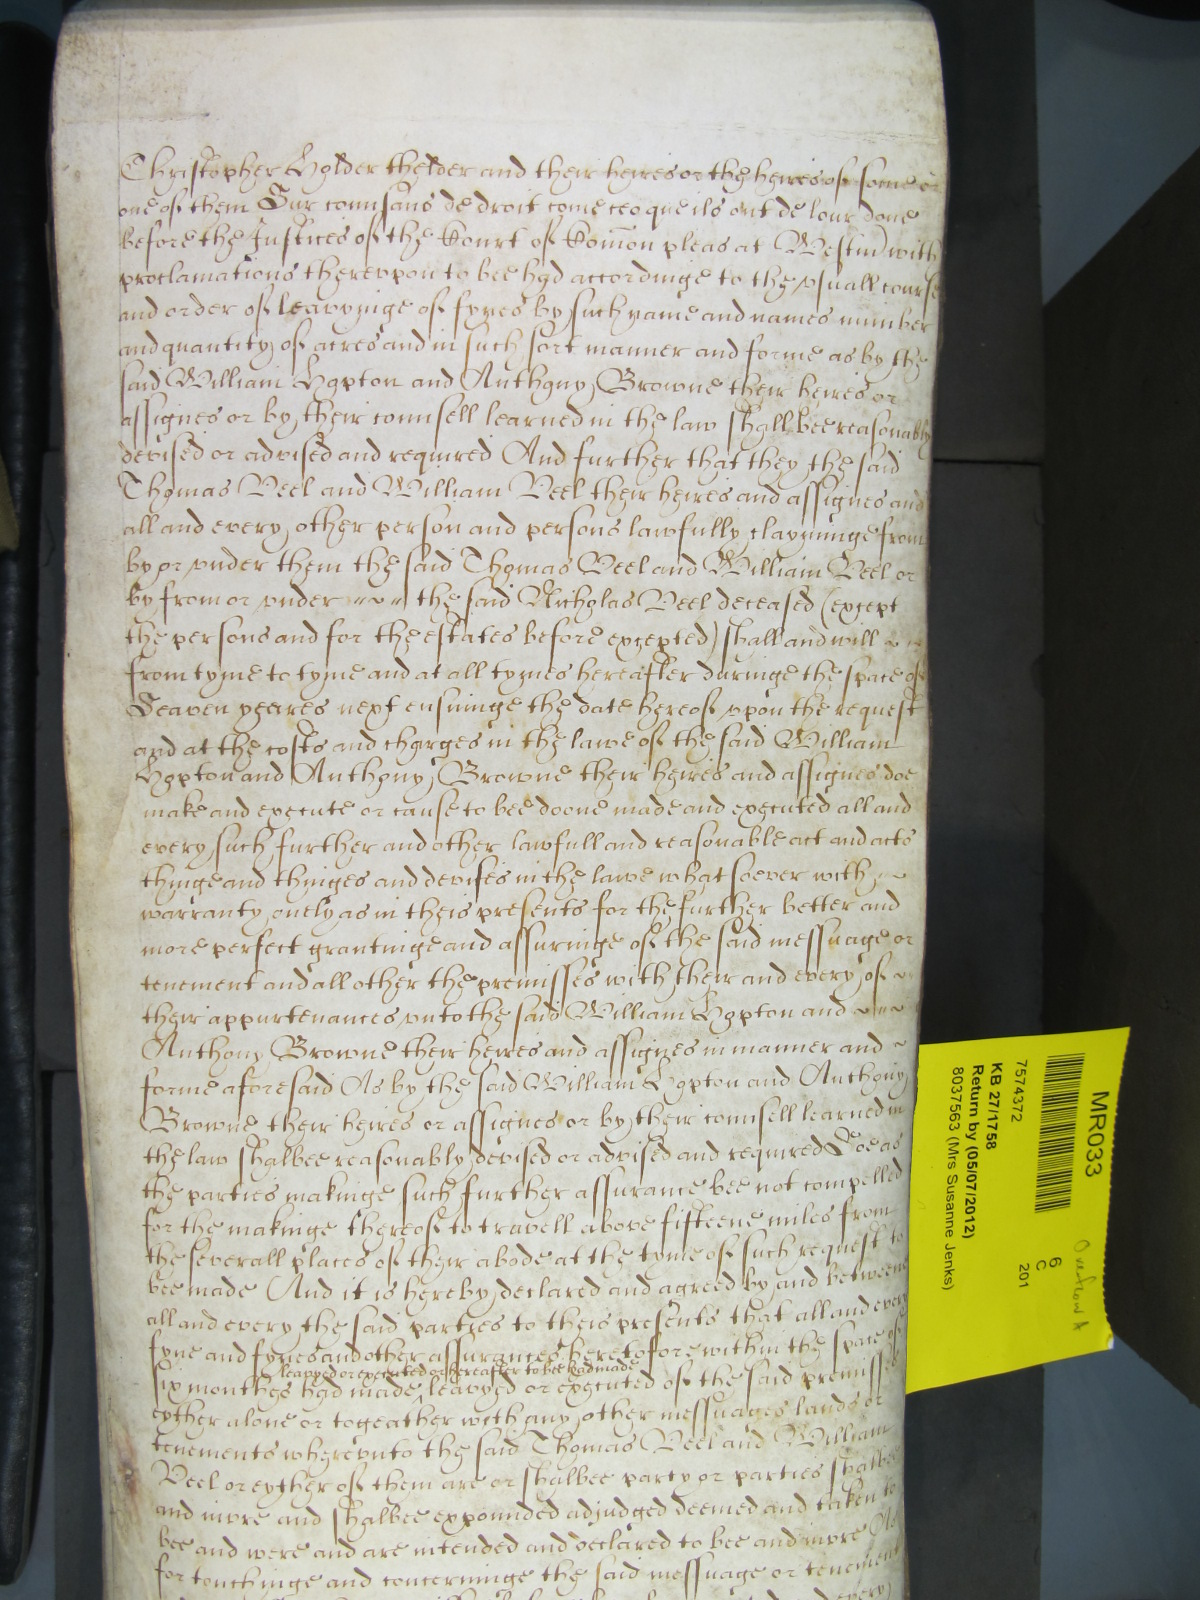 Christopher Holder thelder and their heires or the heires of some or
one of them Sur connisans de droit come ceo que ils ont de lour done
before the Justices of the Court of Comon pleas at Westm with
proclamations therevpon to bee had accordinge to the vsuall course
and order of leavyinge of fynes by such name and names number
and quantity of acres and in such sort manner and forme as by the
said William Hopton and Anthony Browne their heires or
assignes or by their counsell learned in the law shall bee reasonably
devised or advised and required And further that they the said
Thomas Veel and William Veel their heires and assignes and
all and every other person and persons lawfully clayminge from
by or vnder them the said Thomas Veel and William Veel or
by from or vnder the said Nicholas Veel deceased (except
the persons and for the estates before excepted) shall and will
from tyme to tyme and at all tymes hereafter duringe the space of
Seaven yeeres next ensuinge the date hereof vpon the request
and at the costs and charges in the lawe of the said William
Hopton and Anthony Browne their heires and assignes doe
make and execute or cause to bee doone made and executed all and
every such further and other lawfull and reasonable act and acts
thinge and thinges and devises in the lawe what soever with
warranty onely as in theis presents for the further better and
more perfect grantinge and assuringe of the said messuage or
tenement and all other the premisses with their and every of
their appurtenances vnto the said William Hopton and
Anthony Browne their heires and assignes in manner and
forme aforesaid As by the said William Hopton and Anthony
Browne their heires or assignes or by their counsell learned in
the law shalbee reasonably devised or advised and required Soe as
the parties makinge such further assurance bee not compelled
for the makinge thereof to travell above fifteene miles from
the severall places of their abode at the tyme of such request to
bee made And it is hereby declared and agreed by and betweene
all and every the said parties to theis presents that all and every
fyne and fynes and other assurances heretofore within the space of
leavyed or executed or hereafter to bee had made
six monthes had made leavyed or executed of the said premisses
eyther alone or togeather with any other messuages lands or
tenements wherevnto the said Thomas Veel and William
Veel or eyther of them are or shalbee party or parties shalbee
and inure and shalbee expounded adjudged deemed and taken to
bee and were and are intended and declared to bee and inure As
for touchinge and concerninge the said messuage or tenement
MR033
7574372
KB 27/1758
Return by (05/07/2012)
8037563 (Mrs Susanne Jenks)
6
C
201